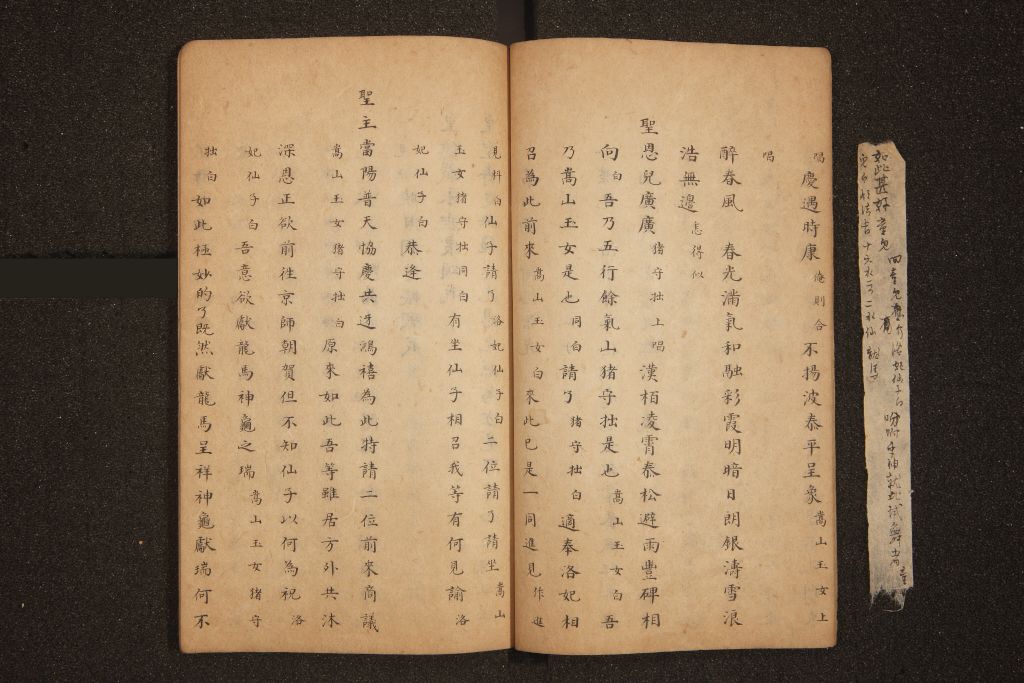 唱慶遇時康俺則合不揚波泰平呈象嵩山玉女上
唱
醉春風 春光滿氣和融彩霞明暗日朗銀濤雪浪
浩無邊怎得似
聖恩兒廣廣猪守拙上唱漢栢凌霄泰松避雨豐碑相
向白吾乃五行餘氣山猪守拙是也嵩山玉女白吾
乃嵩山玉女是也同白請了猪守拙白適奉洛妃相
召為此前來嵩山玉女白來此已是一同進見作進
見科白仙子請了洛妃仙子白二位請了請坐嵩山
玉女猪守拙同白有坐仙子相召我等有何見諭洛
妃仙子白恭逢
聖主當陽普天恊慶共迓鴻禧為此特請二位前來商議
嵩山玉女猪守拙白原來如此吾等雖居方外共沐
深恩正欲前往京師朝賀但不知仙子以何為祝洛
妃仙子白吾意欲獻龍馬神龜之瑞嵩山玉女猪守
拙白如此極妙的了既然獻龍馬呈祥神龜獻瑞何不
如此甚好
洛妃仙子白吩咐
試舞
十六水
二水仙